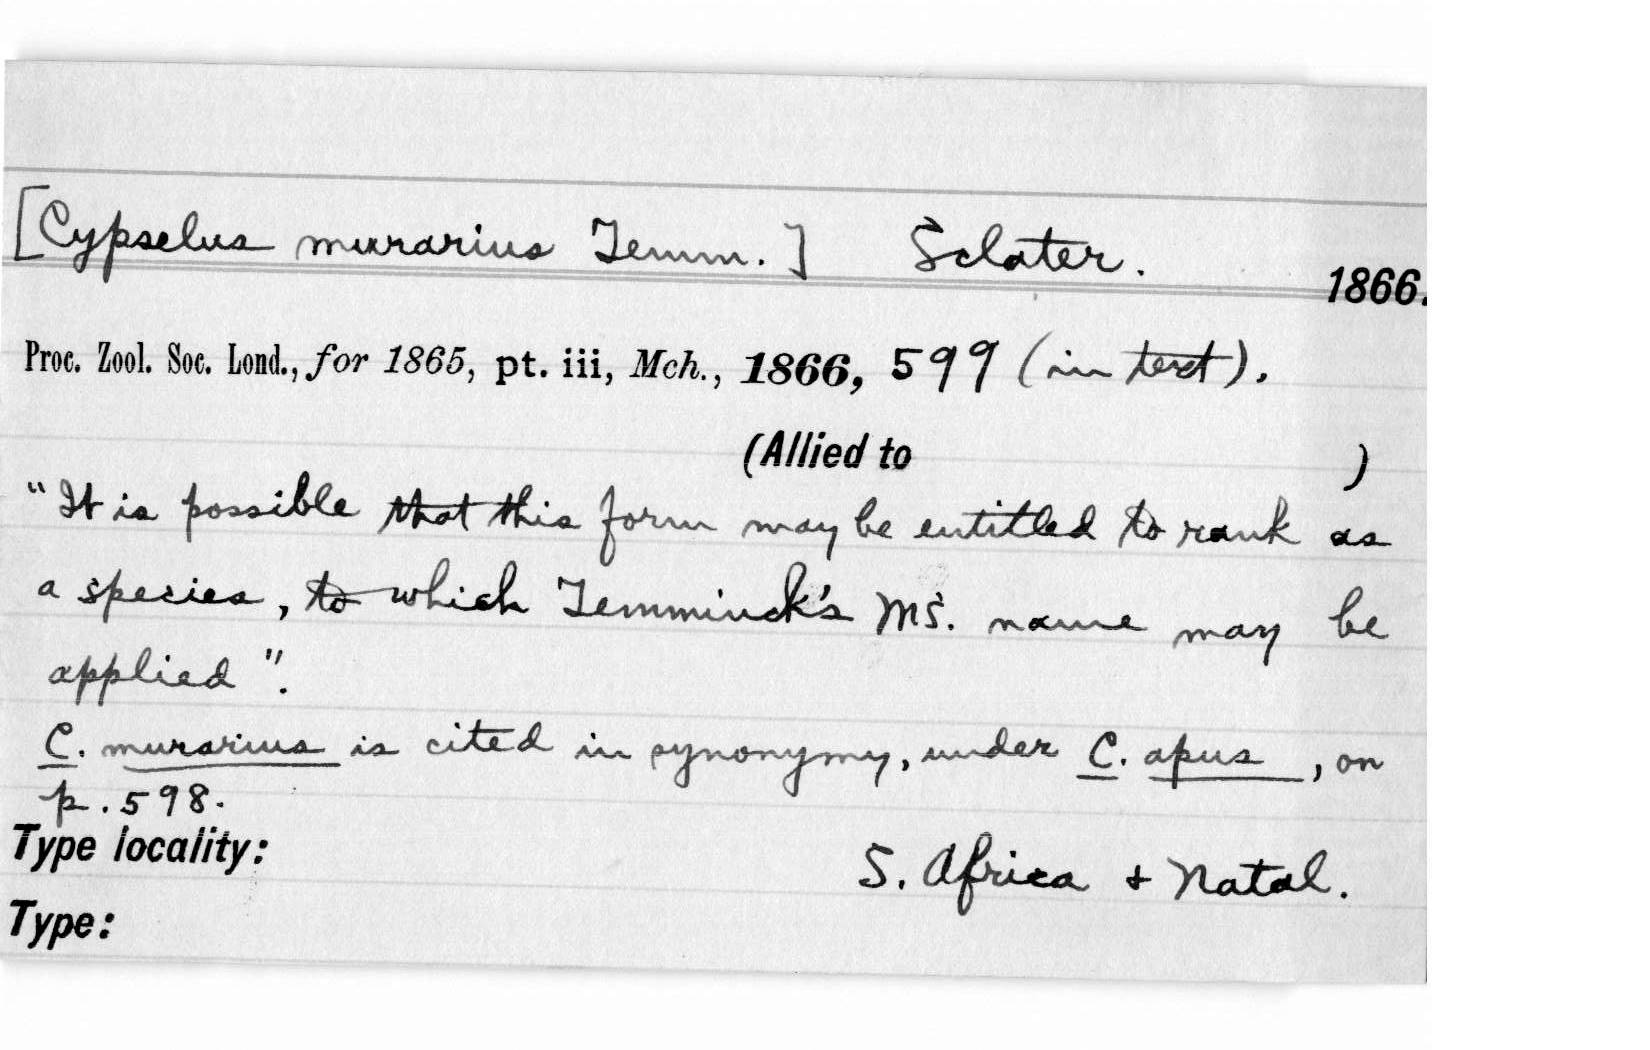 [Cypselus murarius Temm.] Sclater.
1866.
Proc. Zool. Soc. Lond., for 1865, pt. iii, Mch., 1866, 599 (in text).
(Allied to )
"It is possible that this form may be entitled to rank as
a species, to which Temminck's MS. name may be
applied".
C. murarius is cited in synonymy, under C. apus, on
p. 598.
Type locality: S. Africa + Natal.
Type: